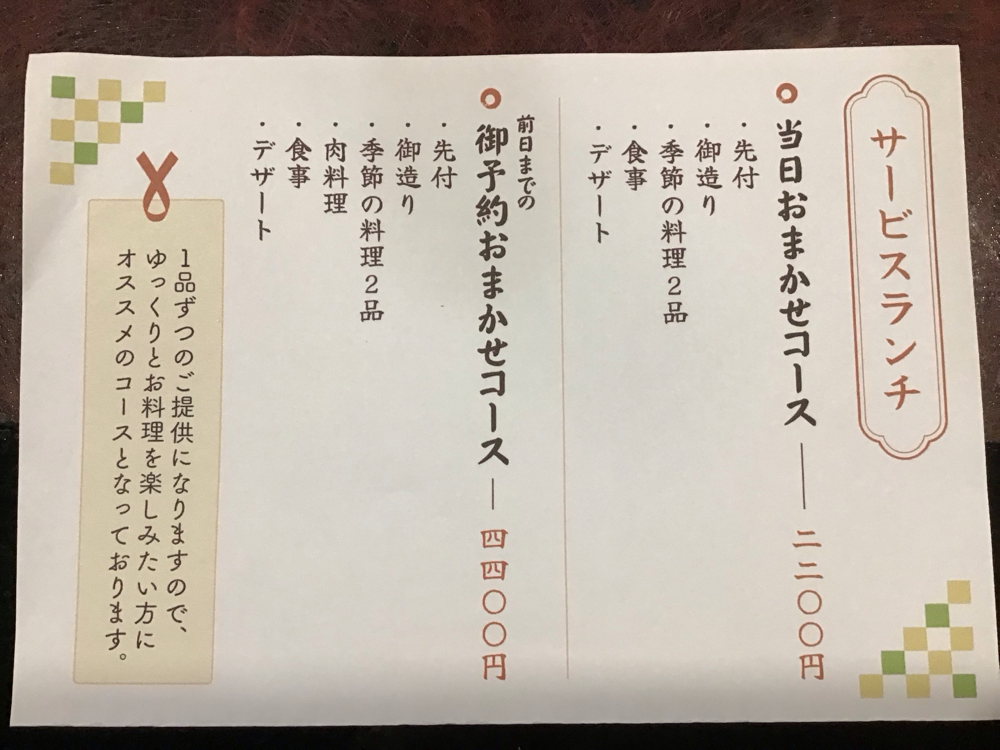 サービスランチ
当日おまかせコース 二二〇〇円
・先付
・御造り
・季節の料理２品
・食事
・デザート
前日までの
御予約おまかせコース 四四〇〇円
・先付
・御造り
・季節の料理２品
・肉料理
・食事
・デザート
1品ずつのご提供になりますので、
ゆっくりとお料理を楽しみたい方に
オススメのコースとなっております。